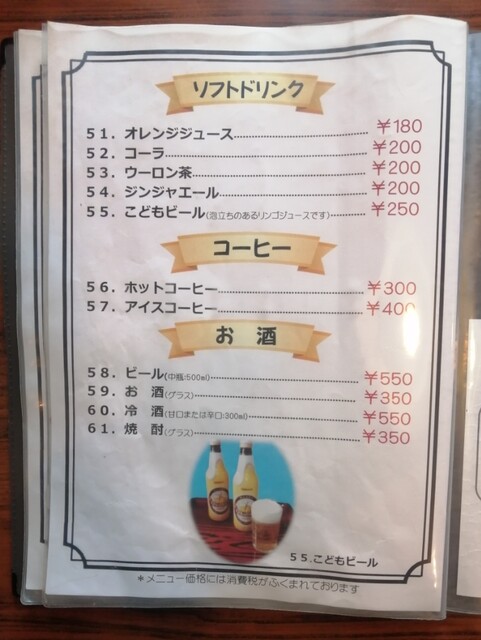 ソフトドリンク
51. オレンジジュース………………¥180
52. コーラ………………¥200
53. ウーロン茶………………¥200
54. ジンジャエール………………¥200
55. こどもビール(泡立ちのあるリンゴジュースです)………¥250
コーヒー
56. ホットコーヒー………………¥300
57. アイスコーヒー………………¥400
お 酒
58. ビール(中瓶:500ml)………………¥550
59. お 酒(グラス)………………¥350
60. 冷 酒(甘口または辛口:300ml)………………¥550
61. 焼 酎(グラス)………………¥350
55.こどもビール
*メニュー価格には消費税がふくまれております